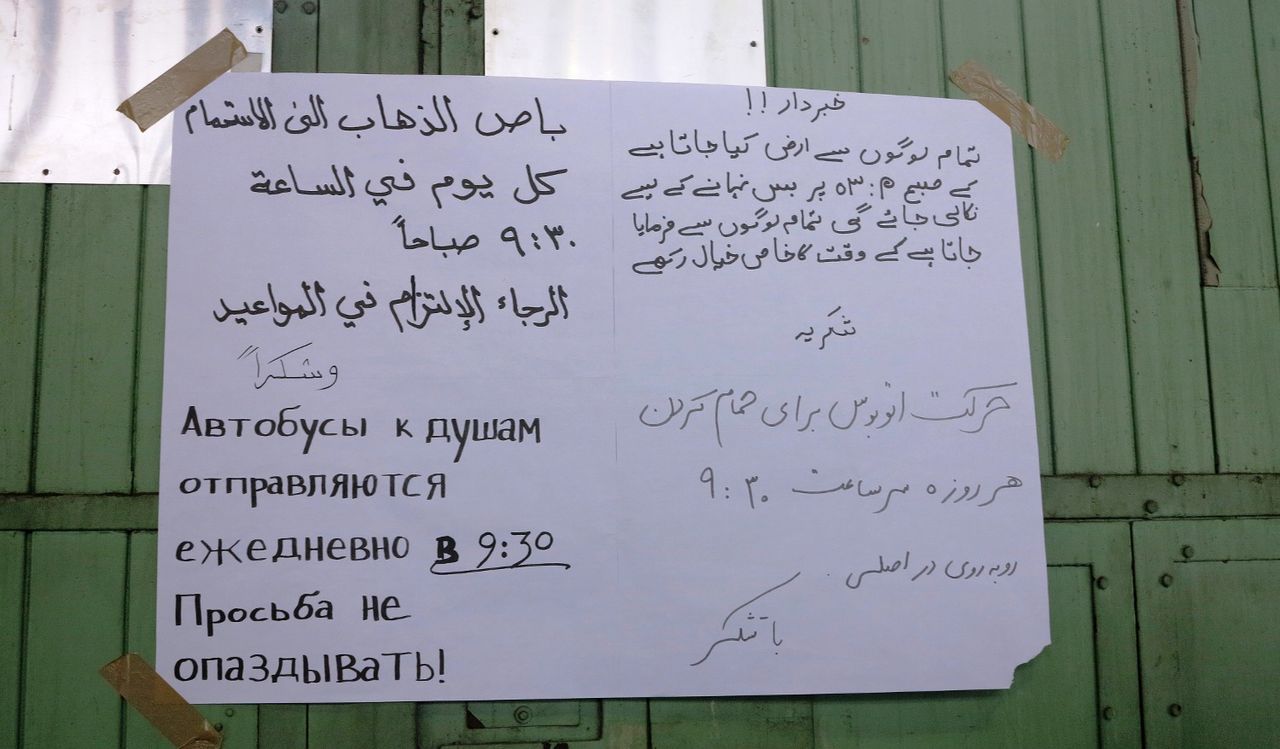 باص الذهاب الى الاستحمام
كل يوم في الساعة
٩:٣٠ صباحاً
الرجاء الإلتزام في المواعيد
وشكراً
Автобусы к душам
отправляются
ежедневно в 9:30
Просьба не
опаздывать!
خبردار !!
تمام لوگوں سے ارض کیا جاتا ہے
کے صبح پر بس نہانے کے لیے
نکالی جائے گی تمام لوگوں سے فرمایا
جاتا ہے کے وقت کا خاص خیال رکھے
شکریہ
حرکت اتوبوس برای حمام کردن
هر روزه سر ساعت ٩:٣٠
روبه روی در اصلی
با تشکر